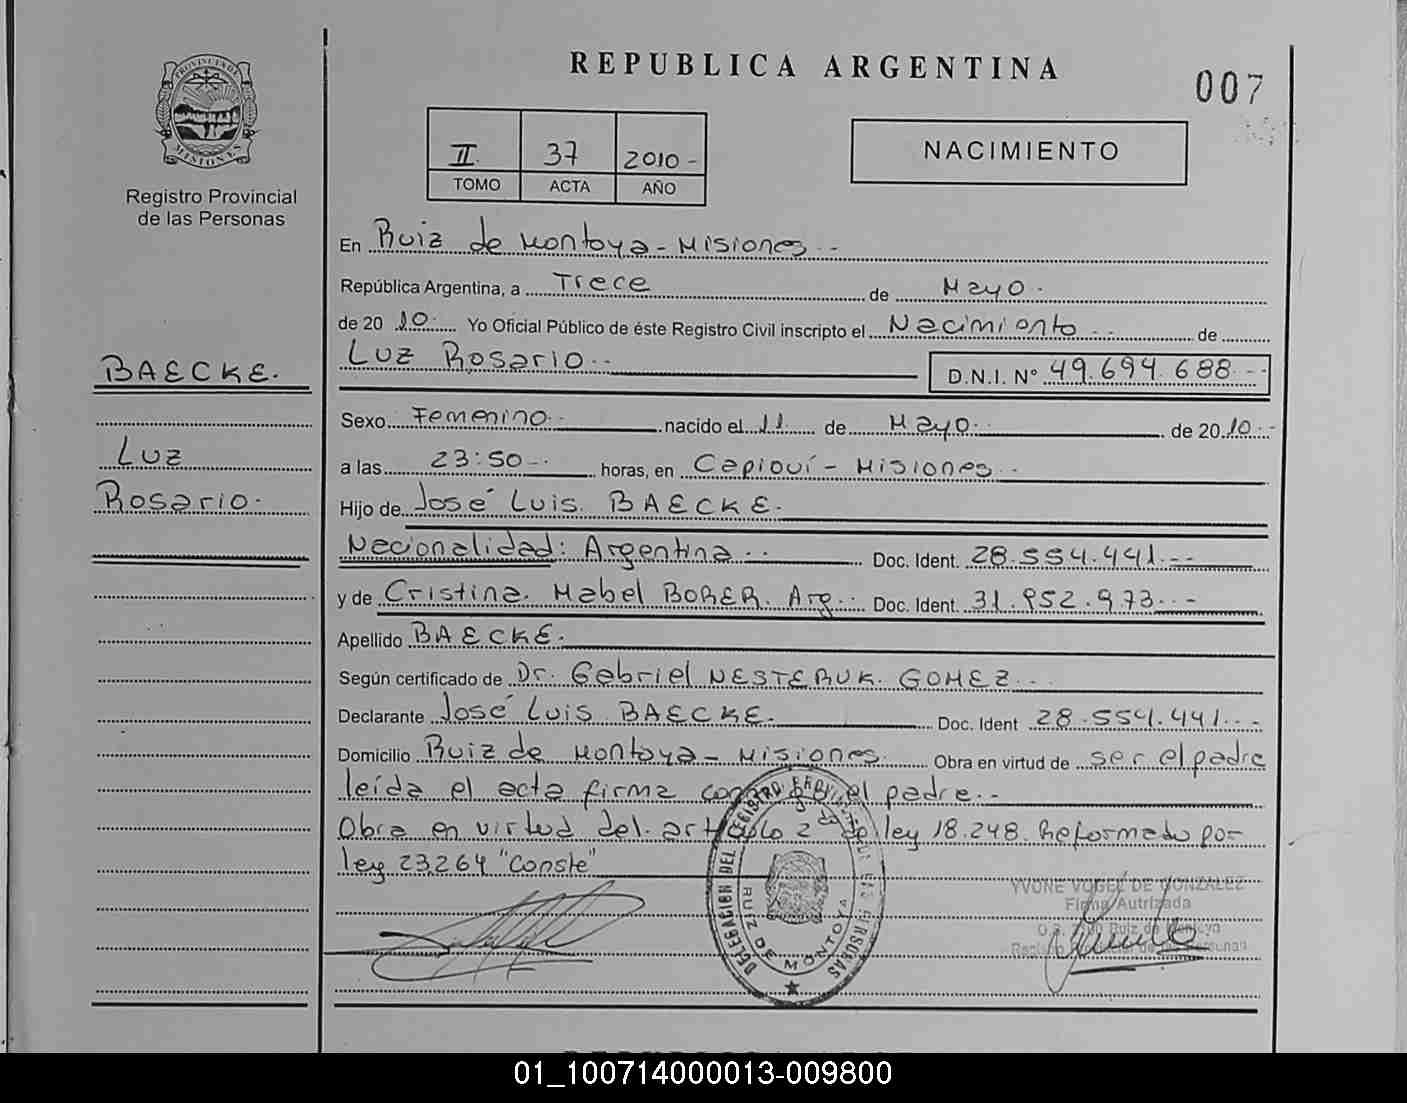 REPUBLICA ARGENTINA
007
PROVINCIA DE MISIONES
Registro Provincial
de las Personas
II 37 2010-
TOMO ACTA AÑO
NACIMIENTO
En Ruiz de Montoya - Misiones
República Argentina, a Trece de Mayo
de 2010 Yo Oficial Público de éste Registro Civil inscripto el Nacimiento de
Luz Rosario D.N.I. N° 49.694.688
BAECKE.
Luz
Rosario
Sexo Femenino nacido el 11 de Mayo de 2010
a las 23:50 horas, en Capioví - Misiones
Hijo de José Luis BAECKE
Nacionalidad: Argentina Doc. Ident. 28.554.441
y de Cristina Mabel BORER. Arg. Doc. Ident. 31.952.973
Apellido BAECKE.
Según certificado de Dr. Gabriel NESTERUK GOMEZ
Declarante José Luis BAECKE. Doc. Ident 28.554.441
Domicilio Ruiz de Montoya - Misiones. Obra en virtud de ser el padre
leída el acta firma conmigo el padre
Obra en virtud del artículo 2 de ley 18.248. Reformado por
ley 23264 "Conste"
DELEGACION DEL REGISTRO PROVINCIAL DE LAS PERSONAS
RUIZ DE MONTOYA
YVONE VOGEL DE GONZALEZ
Firma Autrizada
Ruiz de Montoya
01_100714000013-009800